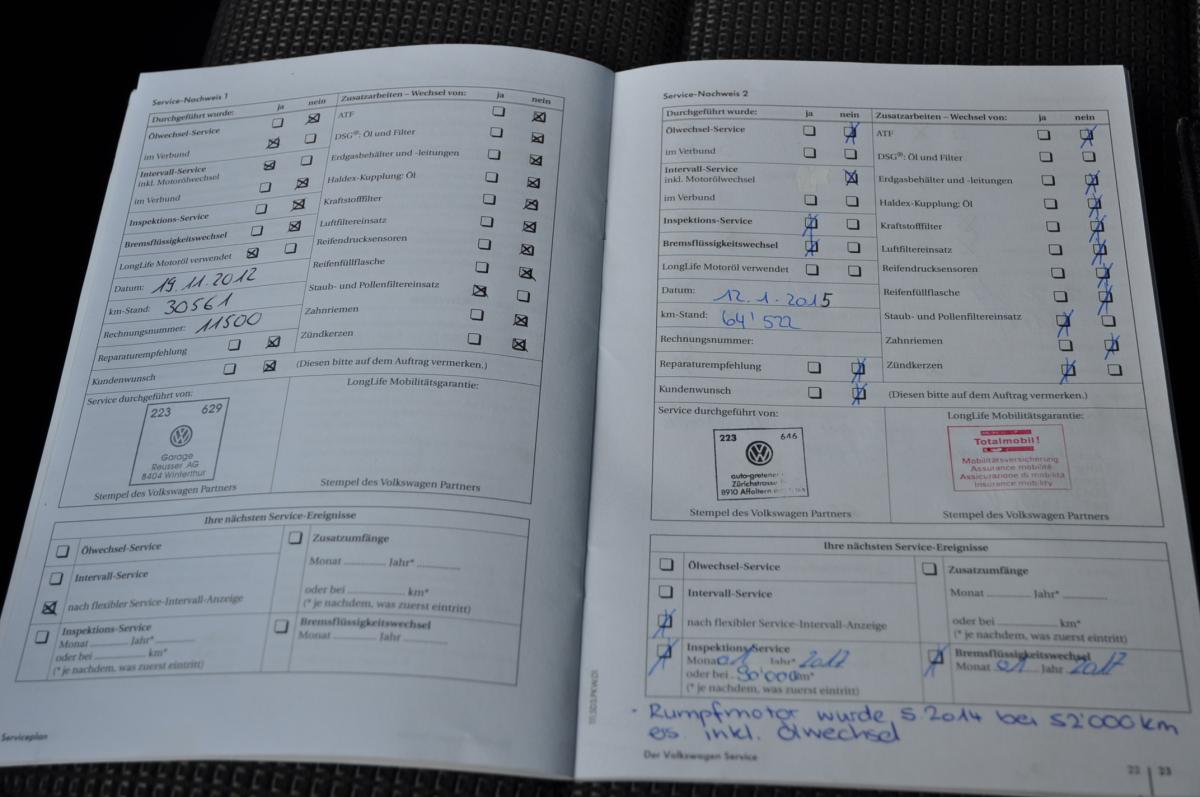 Service-Nachweis 1
Durchgeführt wurde: ja nein
Ölwechsel-Service
im Verbund
Intervall-Service
inkl. Motorölwechsel
im Verbund
Inspektions-Service
Bremsflüssigkeitswechsel
LongLife Motoröl verwendet
Datum: 19.11.2012
km-Stand: 30561
Rechnungsnummer: 11500
Reparaturempfehlung
Kundenwunsch
Zusatzarbeiten – Wechsel von: ja nein
ATF
DSG®: Öl und Filter
Erdgasbehälter und -leitungen
Haldex-Kupplung: Öl
Kraftstofffilter
Luftfiltereinsatz
Reifendrucksensoren
Reifenfüllflasche
Staub- und Pollenfiltereinsatz
Zahnriemen
Zündkerzen
(Diesen bitte auf dem Auftrag vermerken.)
Service durchgeführt von:
223 629
Garage
Reusser AG
8404 Winterthur
Stempel des Volkswagen Partners
LongLife Mobilitätsgarantie:
Stempel des Volkswagen Partners
Ihre nächsten Service-Ereignisse
Ölwechsel-Service
Intervall-Service
nach flexibler Service-Intervall-Anzeige
Inspektions-Service
Monat ........... Jahr* ...........
oder bei ........... km*
(* je nachdem, was zuerst eintritt)
Zusatzumfänge
Monat ........... Jahr* ...........
oder bei ........... km*
(* je nachdem, was zuerst eintritt)
Bremsflüssigkeitswechsel
Monat ........... Jahr ...........
Serviceplan
Service-Nachweis 2
Durchgeführt wurde: ja nein
Ölwechsel-Service
im Verbund
Intervall-Service
inkl. Motorölwechsel
im Verbund
Inspektions-Service
Bremsflüssigkeitswechsel
LongLife Motoröl verwendet
Datum: 12.1.2015
km-Stand: 64'522
Rechnungsnummer:
Reparaturempfehlung
Kundenwunsch
Zusatzarbeiten – Wechsel von: ja nein
ATF
DSG®: Öl und Filter
Erdgasbehälter und -leitungen
Haldex-Kupplung: Öl
Kraftstofffilter
Luftfiltereinsatz
Reifendrucksensoren
Reifenfüllflasche
Staub- und Pollenfiltereinsatz
Zahnriemen
Zündkerzen
(Diesen bitte auf dem Auftrag vermerken.)
Service durchgeführt von:
223 646
Zürichstrasse
8910 Affoltern
Stempel des Volkswagen Partners
LongLife Mobilitätsgarantie:
Totalmobil!
Mobilitätsversicherung
Assurance mobilité
Assicurazione di mobilità
Insurance mobility
Stempel des Volkswagen Partners
Ihre nächsten Service-Ereignisse
Ölwechsel-Service
Intervall-Service
nach flexibler Service-Intervall-Anzeige
Inspektions-Service
Monat 01 Jahr* 2017
oder bei 90'000 km*
(* je nachdem, was zuerst eintritt)
Zusatzumfänge
Monat ........... Jahr* ...........
oder bei ........... km*
(* je nachdem, was zuerst eintritt)
Bremsflüssigkeitswechsel
Monat 01 Jahr 2017
- Rumpfmotor wurde 5.2014 bei 52'000 km
ers. inkl. Ölwechsel
Der Volkswagen Service
22 | 23